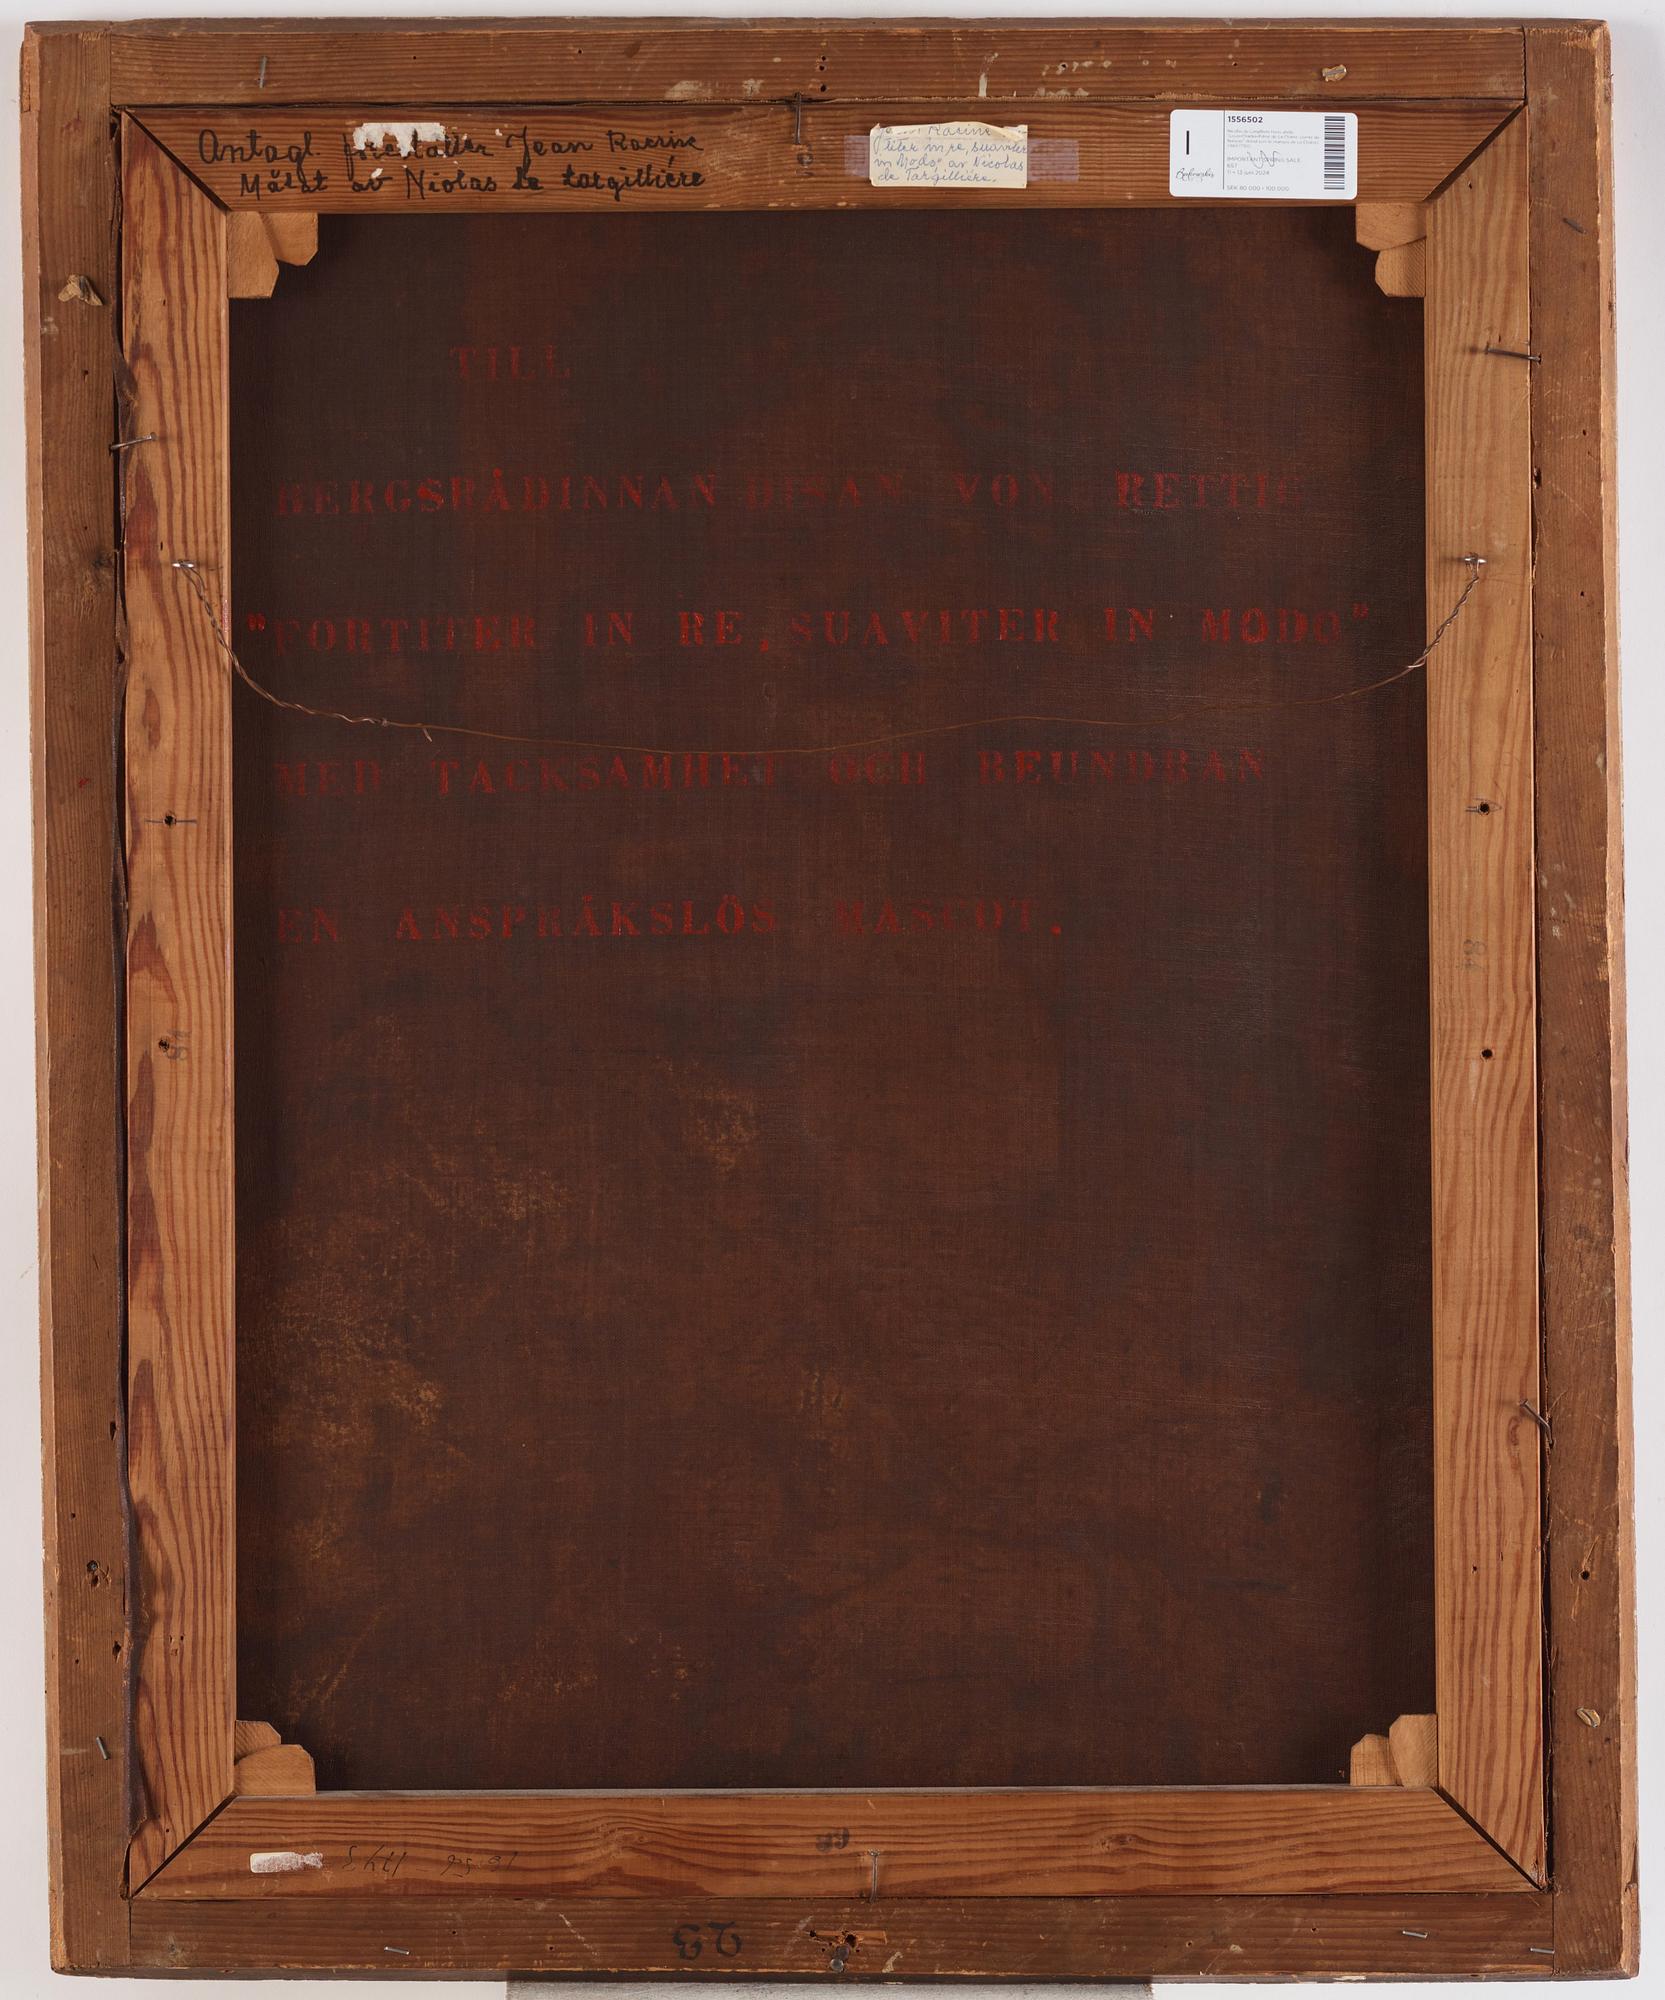 Antagl. föreställer Jean Racine
Målat av Niolas de Largilliére
Jean Racine
titer in re, suaviter
in Modo" av Nicolas
de Largilliére.
1556502
IMPORTANT SPRING SALE
637
11 – 13 juni 2024
SEK 80 000 – 100 000
TILL
BERGSRÅDINNAN DISAN VON RETTIG
"FORTITER IN RE, SUAVITER IN MODO"
MED TACKSAMHET OCH BEUNDRAN
EN ANSPRÅKSLÖS MASCOT.
84
23